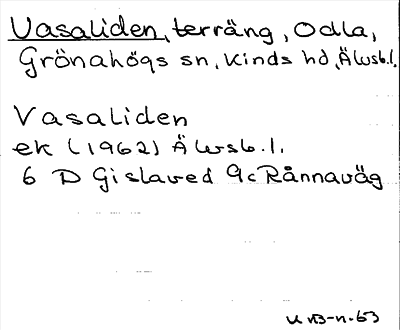 Vasaliden, terräng, Odla,
Grönahögs sn, Kinds hd, Älvsb.l.
Vasaliden
ek (1962) Älvsb.l.
6 D Gislaved 9c Rånnaväg